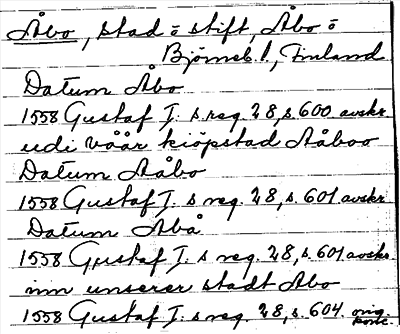 Åbo, stad o stift, Åbo o
Björneb. l., Finland
Datum Åbo
1558 Gustaf I. s reg. 28, s. 600 avskr.
udi våår kiöpstad Aåboo
Datum Aåbo
1558 Gustaf I. s reg. 28, s. 601 avskr.
Datum Abå
1558 Gustaf I. s reg. 28, s. 601 avskr.
inn unserer stadt Abo
1558 Gustaf I. s reg. 28, s. 604. orig. konc.